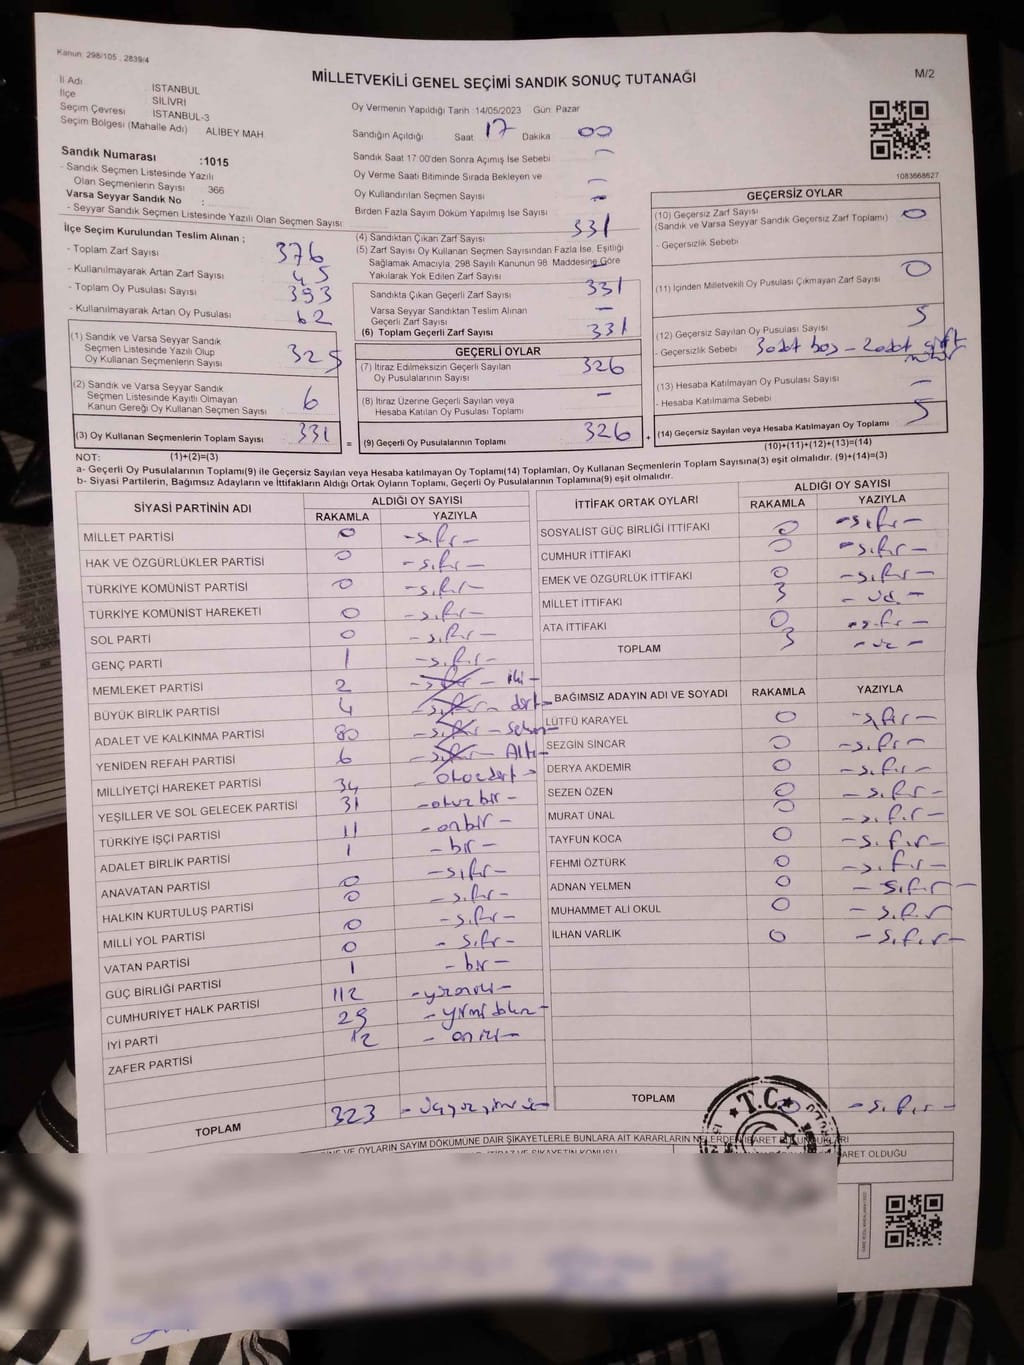 Kanun: 298/105 , 2839/4
MİLLETVEKİLİ GENEL SEÇİMİ SANDIK SONUÇ TUTANAĞI
M/2
İl Adı İSTANBUL
İlçe SİLİVRİ
Seçim Çevresi İSTANBUL-3
Seçim Bölgesi (Mahalle Adı) ALİBEY MAH
Sandık Numarası :1015
- Sandık Seçmen Listesinde Yazılı
Olan Seçmenlerin Sayısı 366
Varsa Seyyar Sandık No :
- Seyyar Sandık Seçmen Listesinde Yazılı Olan Seçmen Sayısı:
İlçe Seçim Kurulundan Teslim Alınan ;
- Toplam Zarf Sayısı 376
- Kullanılmayarak Artan Zarf Sayısı 45
- Toplam Oy Pusulası Sayısı 393
- Kullanılmayarak Artan Oy Pusulası 62
(1) Sandık ve Varsa Seyyar Sandık
Seçmen Listesinde Yazılı Olup
Oy Kullanan Seçmenlerin Sayısı 325
(2) Sandık ve Varsa Seyyar Sandık
Seçmen Listesinde Kayıtlı Olmayan
Kanun Gereği Oy Kullanan Seçmen Sayısı 6
(3) Oy Kullanan Seçmenlerin Toplam Sayısı 331
Oy Vermenin Yapıldığı Tarih :14/05/2023 Gün: Pazar
Sandığın Açıldığı Saat 17 Dakika 00
Sandık Saat 17:00'den Sonra Açımış İse Sebebi —
Oy Verme Saati Bitiminde Sırada Bekleyen ve
Oy Kullandırılan Seçmen Sayısı —
Birden Fazla Sayım Döküm Yapılmış İse Sayısı —
(4) Sandıktan Çıkan Zarf Sayısı 331
(5) Zarf Sayısı Oy Kullanan Seçmen Sayısından Fazla İse, Eşitliği
Sağlamak Amacıyla, 298 Sayılı Kanunun 98. Maddesine Göre
Yakılarak Yok Edilen Zarf Sayısı —
Sandıkta Çıkan Geçerli Zarf Sayısı 331
Varsa Seyyar Sandıktan Teslim Alınan
Geçerli Zarf Sayısı —
(6) Toplam Geçerli Zarf Sayısı 331
GEÇERLİ OYLAR
(7) İtiraz Edilmeksizin Geçerli Sayılan
Oy Pusulalarının Sayısı 326
(8) İtiraz Üzerine Geçerli Sayılan veya
Hesaba Katılan Oy Pusulası Toplamı —
= (9) Geçerli Oy Pusulalarının Toplamı 326 +
1083668627
GEÇERSİZ OYLAR
(10) Geçersiz Zarf Sayısı
(Sandık ve Varsa Seyyar Sandık Geçersiz Zarf Toplamı) 0
- Geçersizlik Sebebi
(11) İçinden Milletvekili Oy Pusulası Çıkmayan Zarf Sayısı 0
(12) Geçersiz Sayılan Oy Pusulası Sayısı 5
- Geçersizlik Sebebi 3 adet boş - 2 adet çift
mühür
(13) Hesaba Katılmayan Oy Pusulası Sayısı —
- Hesaba Katılmama Sebebi
(14) Geçersiz Sayılan veya Hesaba Katılmayan Oy Toplamı 5
NOT: (1)+(2)=(3) (10)+(11)+(12)+(13)=(14)
a- Geçerli Oy Pusulalarının Toplamı(9) ile Geçersiz Sayılan veya Hesaba katılmayan Oy Toplamı(14) Toplamları, Oy Kullanan Seçmenlerin Toplam Sayısına(3) eşit olmalıdır. (9)+(14)=(3)
b- Siyasi Partilerin, Bağımsız Adayların ve İttifakların Aldığı Ortak Oyların Toplamı, Geçerli Oy Pusulalarının Toplamına(9) eşit olmalıdır.
SİYASİ PARTİNİN ADI ALDIĞI OY SAYISI
RAKAMLA YAZIYLA
MİLLET PARTİSİ 0 -sıfır-
HAK VE ÖZGÜRLÜKLER PARTİSİ 0 -sıfır-
TÜRKİYE KOMÜNİST PARTİSİ 0 -sıfır-
TÜRKİYE KOMÜNİST HAREKETİ 0 -sıfır-
SOL PARTİ 0 -sıfır-
GENÇ PARTİ 1 -sıfır-
MEMLEKET PARTİSİ 2 -sıfır- iki-
BÜYÜK BİRLİK PARTİSİ 4 -sıfır- dört-
ADALET VE KALKINMA PARTİSİ 80 -sıfır- seksen-
YENİDEN REFAH PARTİSİ 6 -sıfır- Altı-
MİLLİYETÇİ HAREKET PARTİSİ 34 -otuzdört-
YEŞİLLER VE SOL GELECEK PARTİSİ 31 -otuz bir-
TÜRKİYE İŞÇİ PARTİSİ 11 -onbir-
ADALET BİRLİK PARTİSİ 1 -bir-
ANAVATAN PARTİSİ 0 -sıfır-
HALKIN KURTULUŞ PARTİSİ 0 -sıfır-
MİLLİ YOL PARTİSİ 0 -sıfır-
VATAN PARTİSİ 0 -sıfır-
GÜÇ BİRLİĞİ PARTİSİ 1 -bir-
CUMHURİYET HALK PARTİSİ 112 -yüzoniki-
İYİ PARTİ 29 -yirmidokuz-
ZAFER PARTİSİ 12 -oniki-
TOPLAM 323 -üçyüzyirmiüç-
İTTİFAK ORTAK OYLARI ALDIĞI OY SAYISI
RAKAMLA YAZIYLA
SOSYALİST GÜÇ BİRLİĞİ İTTİFAKI 0 -sıfır-
CUMHUR İTTİFAKI 0 -sıfır-
EMEK VE ÖZGÜRLÜK İTTİFAKI 0 -sıfır-
MİLLET İTTİFAKI 3 -üç-
ATA İTTİFAKI 0 -sıfır-
TOPLAM 3 -üç-
BAĞIMSIZ ADAYIN ADI VE SOYADI RAKAMLA YAZIYLA
LÜTFÜ KARAYEL 0 -sıfır-
SEZGİN SİNCAR 0 -sıfır-
DERYA AKDEMİR 0 -sıfır-
SEZEN ÖZEN 0 -sıfır-
MURAT ÜNAL 0 -sıfır-
TAYFUN KOCA 0 -sıfır-
FEHMİ ÖZTÜRK 0 -sıfır-
ADNAN YELMEN 0 -sıfır-
MUHAMMET ALİ OKUL 0 -sıfır-
İLHAN VARLIK 0 -sıfır-
TOPLAM 0 -sıfır-
T.C.
VE OYLARIN SAYIM DÖKÜMÜNE DAİR ŞİKAYETLERLE BUNLARA AİT KARARLARIN NELERDEN İBARET BULUNDUKLARI
OLDUĞU